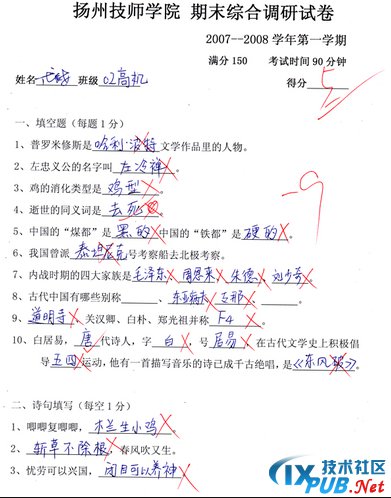 扬州技师学院 期末综合调研试卷
2007--2008 学年第一学期
满分 150 考试时间 90 分钟
姓名 班级 02高机 得分 5
一、填空题（每题 1 分）
-9
1、普罗米修斯是哈利·波特文学作品里的人物。
2、左忠义公的名字叫 左冷禅
3、鸡的消化类型是 鸡型
4、逝世的同义词是 去死
5、中国的“煤都”是 黑的 中国的“铁都”是 硬的。
6、我国曾派 泰坦尼克号考察船去北极考察。
7、内战时期的四大家族是毛泽东、周恩来、朱德、刘少奇。
8、古代中国有哪些别称 、东亚病夫、支那。
9、道明寺、关汉卿、白朴、郑光祖并称 F4。
10、白居易，唐代诗人，字 白，号 居易。在古代文学史上积极倡
导 五四 运动，他有一首描写音乐的诗已成千古绝唱，是《东风破》。
二、诗句填写（每空 1 分）
1、唧唧复唧唧，木兰生小鸡
2、斩草不除根，春风吹又生。
3、忧劳可以兴国，闭目可以养神
IXPUB.Net 技术社区